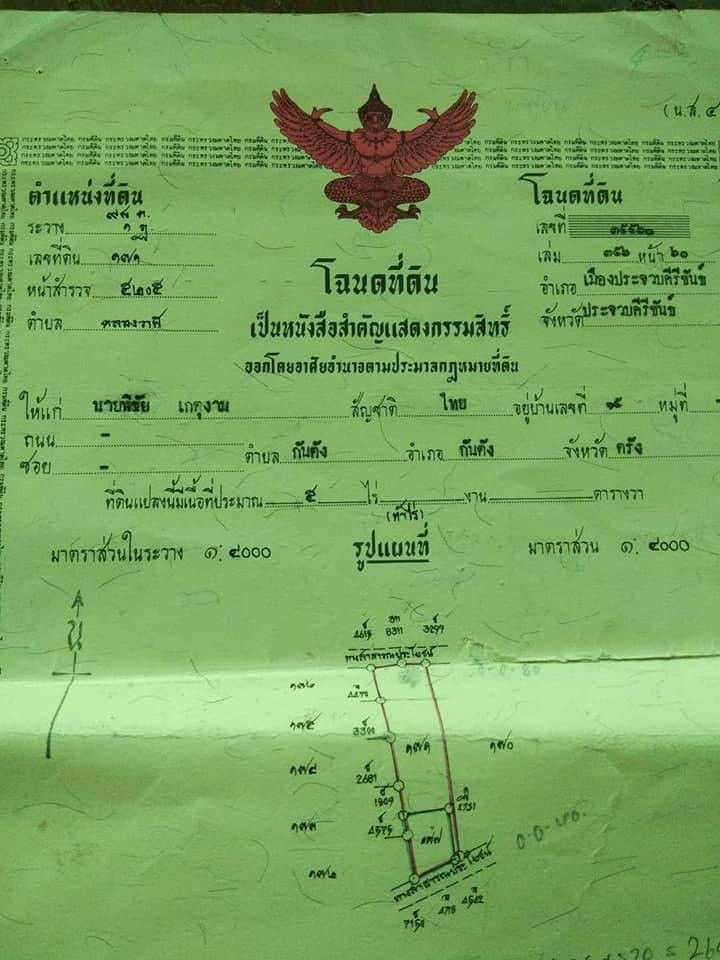 (น.ส. ๔
กระทรวงมหาดไทย กรมที่ดิน กระทรวงมหาดไทย กรมที่ดิน
ตำแหน่งที่ดิน
ระวาง
เลขที่ดิน ๑๗๑
หน้าสำรวจ ๕๒๐๕
ตำบล คลองวาฬ
โฉนดที่ดิน
เลขที่
เล่ม ๓๕๖ หน้า ๖๐
อำเภอ เมืองประจวบคีรีขันธ์
จังหวัด ประจวบคีรีขันธ์
โฉนดที่ดิน
เป็นหนังสือสำคัญแสดงกรรมสิทธิ์
ออกโดยอาศัยอำนาจตามประมวลกฎหมายที่ดิน
ให้แก่ นายพิชัย เกตุงาม สัญชาติ ไทย อยู่บ้านเลขที่ หมู่ที่ -
ถนน -
ซอย - ตำบล กันตัง อำเภอ กันตัง จังหวัด ตรัง
ที่ดินแปลงนี้มีเนื้อที่ประมาณ ๕ ไร่ - งาน - ตารางวา
(ห้าไร่)
มาตราส่วนในระวาง ๑:๔๐๐๐ รูปแผนที่ มาตราส่วน ๑:๔๐๐๐
น
8311 3299
ทางสาธารณประโยชน์
๑๗๖
๑๗๕
๑๗๑ ๑๗๐
๑๗๔
2681
1809
๑๗๓
๑๗๒
ทางสาธารณประโยชน์